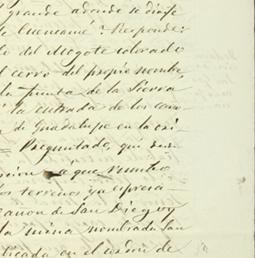 grande adonde se dirije
Cuencamé? Responde:
lo del Mogote colorado
el cerro del propio nombre
la punta de la Sierra
á la entrada de los
de Guadalupe en la
Preguntado, qué
a que rumbo
los terrenos ya espresa
cañon de San Diego y
la mina nombrada San
licada en el orden de